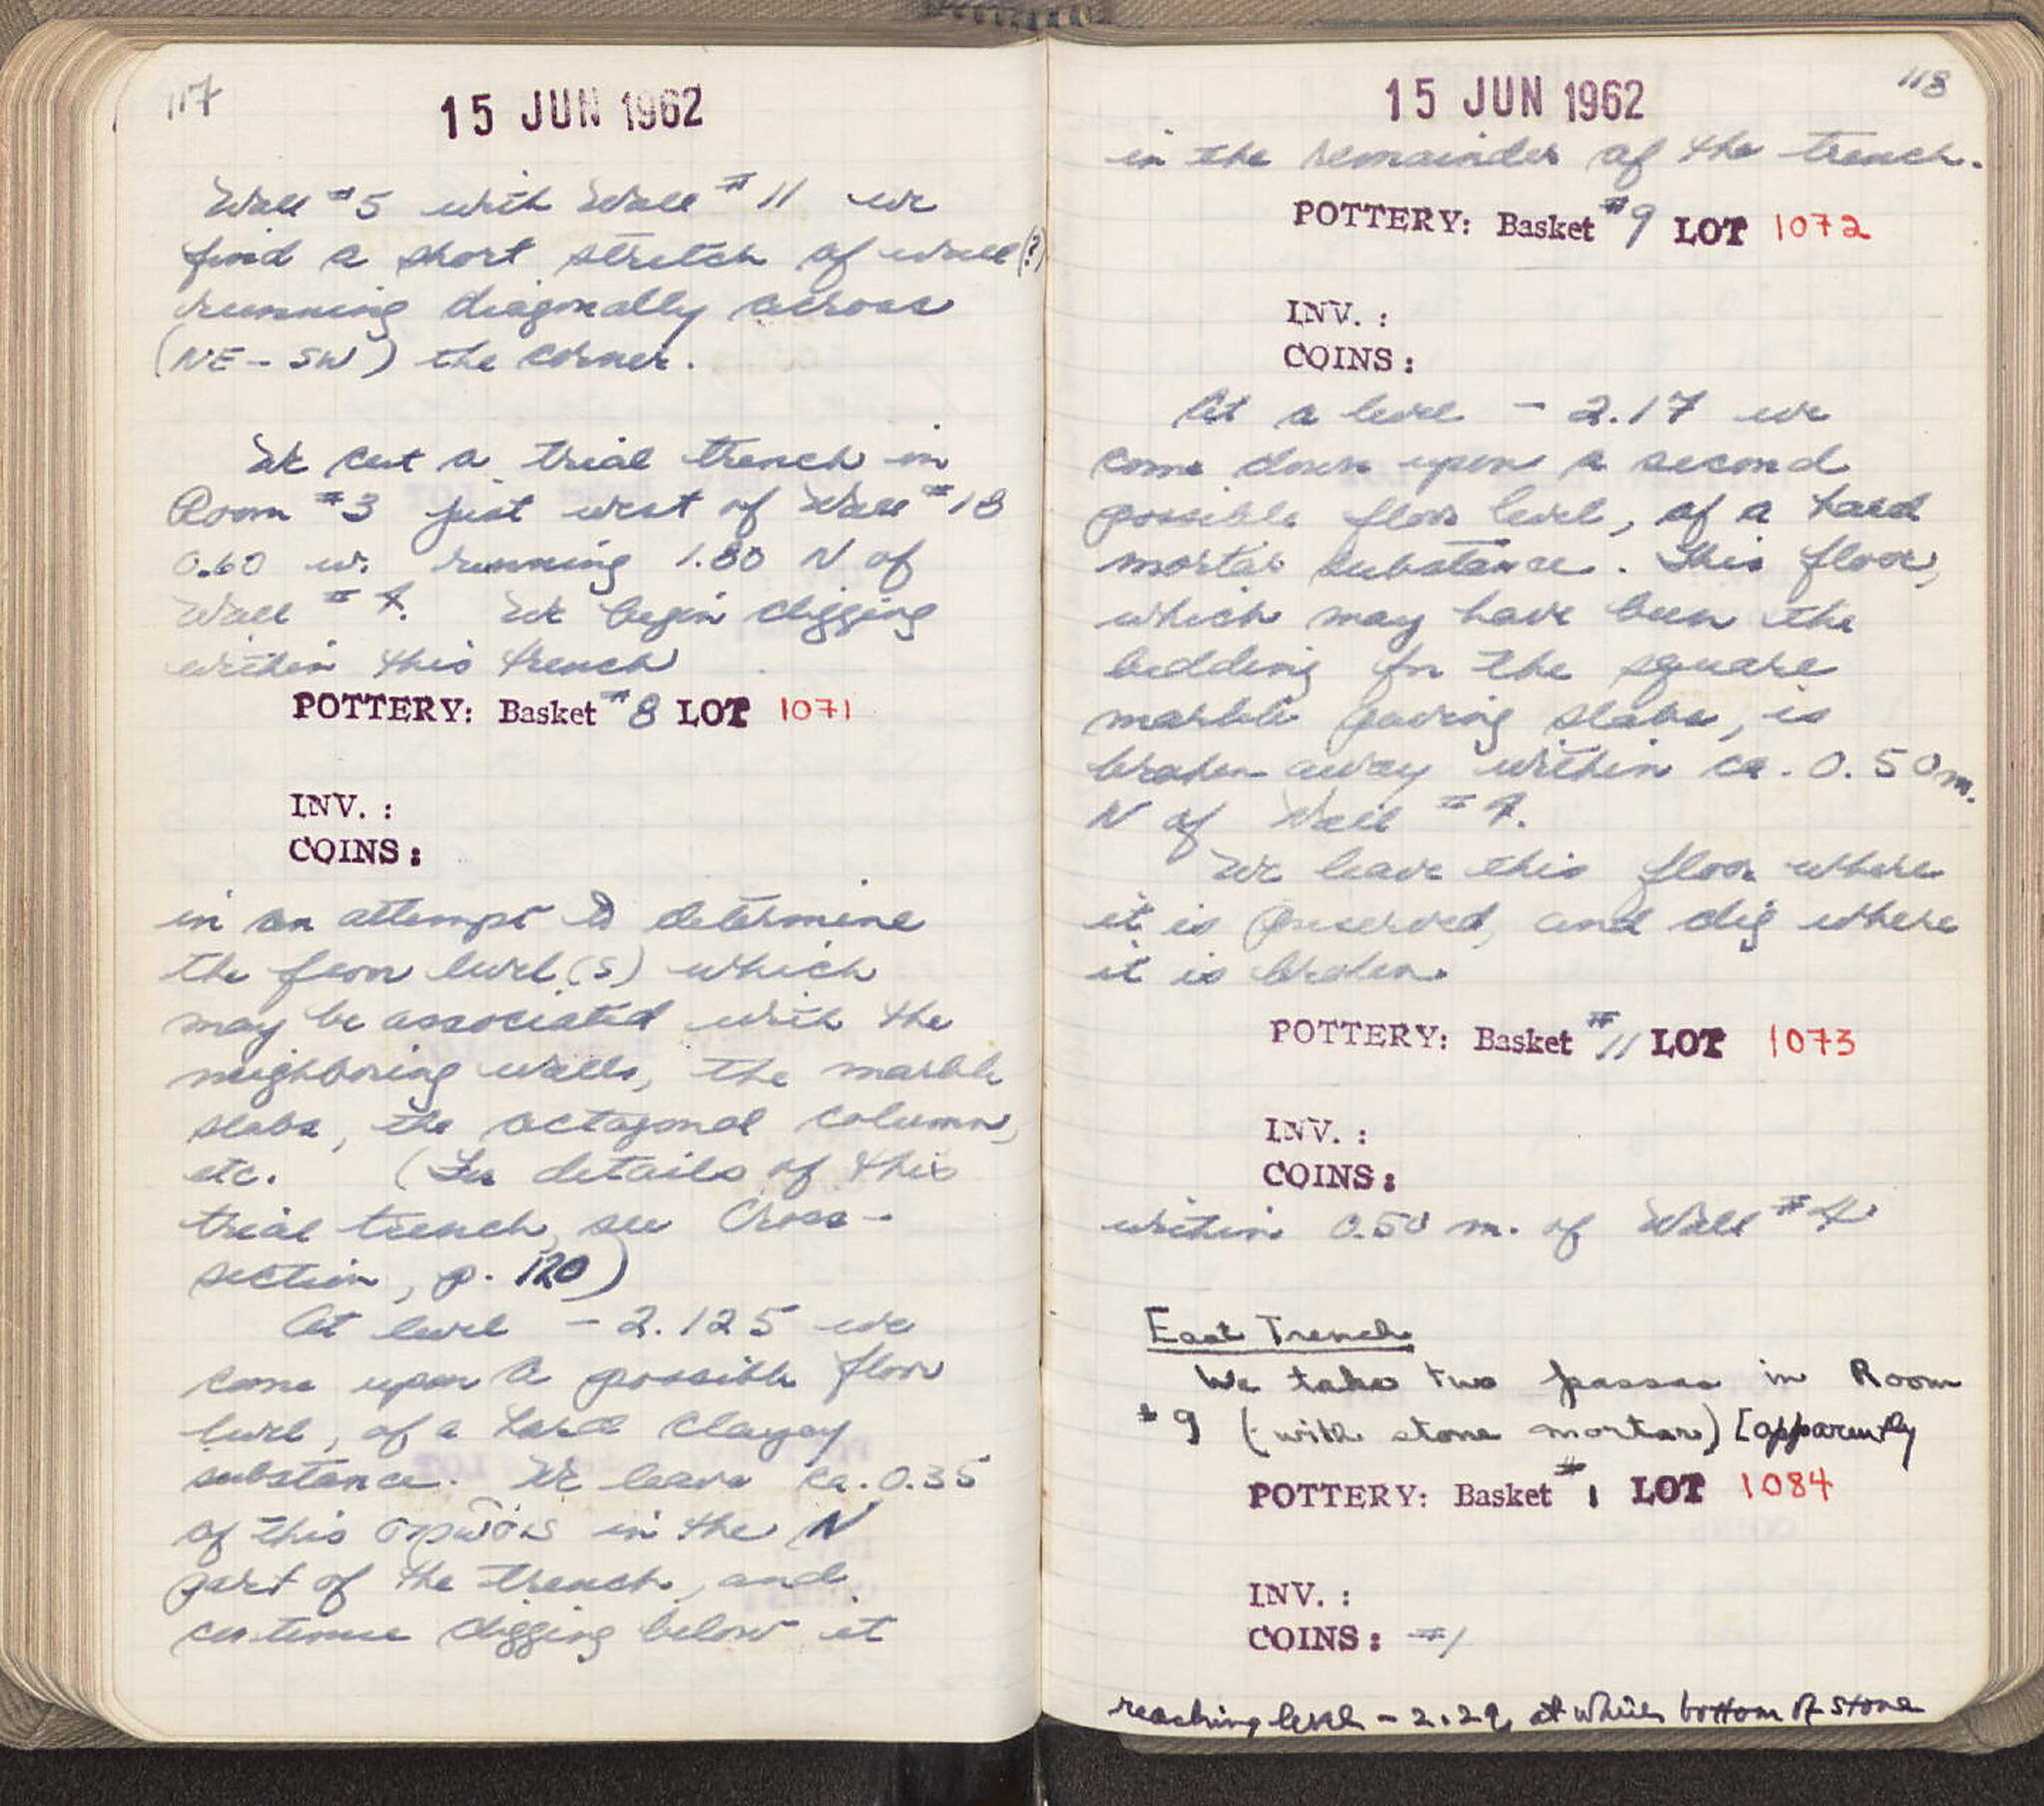 117
15 JUN 1962
Wall #5 with Wall #11 we
find a short stretch of wall(?)
running diagonally across
(NE-SW) the corner.
We cut a trial trench in
Room #3 just west of Wall #18
0.60 w. running 1.80 N of
Wall #4. We begin digging
within this trench
POTTERY: Basket #8 LOT 1071
INV. :
COINS:
in an attempt to determine
the floor level(s) which
may be associated with the
neighboring walls, the marble
slabs, the octagonal column,
etc. (For details of this
trial trench, see Cross-
section, p. 120)
At level - 2.125 we
come upon a possible floor
level, of a hard clayey
substance. We leave ca. 0.35
of this στρῶσις in the N
part of the trench, and
continue digging below it
118
15 JUN 1962
in the remainder of the trench.
POTTERY: Basket #9 LOT 1072
INV. :
COINS:
At a level - 2.17 we
come down upon a second
possible floor level, of a hard
mortar substance. This floor,
which may have been the
bedding for the square
marble paving slabs, is
broken away within ca. 0.50m.
N of Wall #4.
We leave this floor where
it is preserved, and dig where
it is broken.
POTTERY: Basket #11 LOT 1073
INV. :
COINS:
within 0.50 m. of Wall #4
East Trench
We take two passes in Room
#9 (with stone mortar) [apparently
POTTERY: Basket #1 LOT 1084
INV. :
COINS: #1
reaching level - 2.29, at which bottom of stone